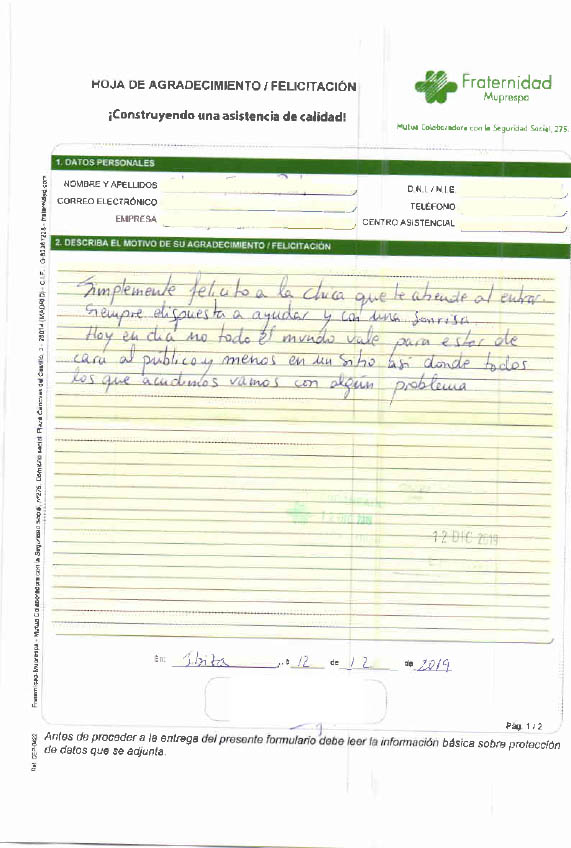 HOJA DE AGRADECIMIENTO / FELICITACIÓN
¡Construyendo una asistencia de calidad!
Fraternidad
Muprespa
Mutua Colaboradora con la Seguridad Social, 275.
1. DATOS PERSONALES
NOMBRE Y APELLIDOS
D.N.I. / N.I.E.
CORREO ELECTRÓNICO
TELÉFONO
EMPRESA
CENTRO ASISTENCIAL
2. DESCRIBA EL MOTIVO DE SU AGRADECIMIENTO / FELICITACIÓN
Simplemente felicito a la chica que te atiende al entrar.
Siempre dispuesta a ayudar y con una sonrisa.
Hoy en día no todo el mundo vale para estar de
cara al público y menos en un sitio así donde todos
los que acudimos vamos con algún problema
12 DIC 2019
En: Ibiza, a 12 de 12 de 2019
Pág. 1 / 2
Antes de proceder a la entrega del presente formulario debe leer la información básica sobre protección
de datos que se adjunta.